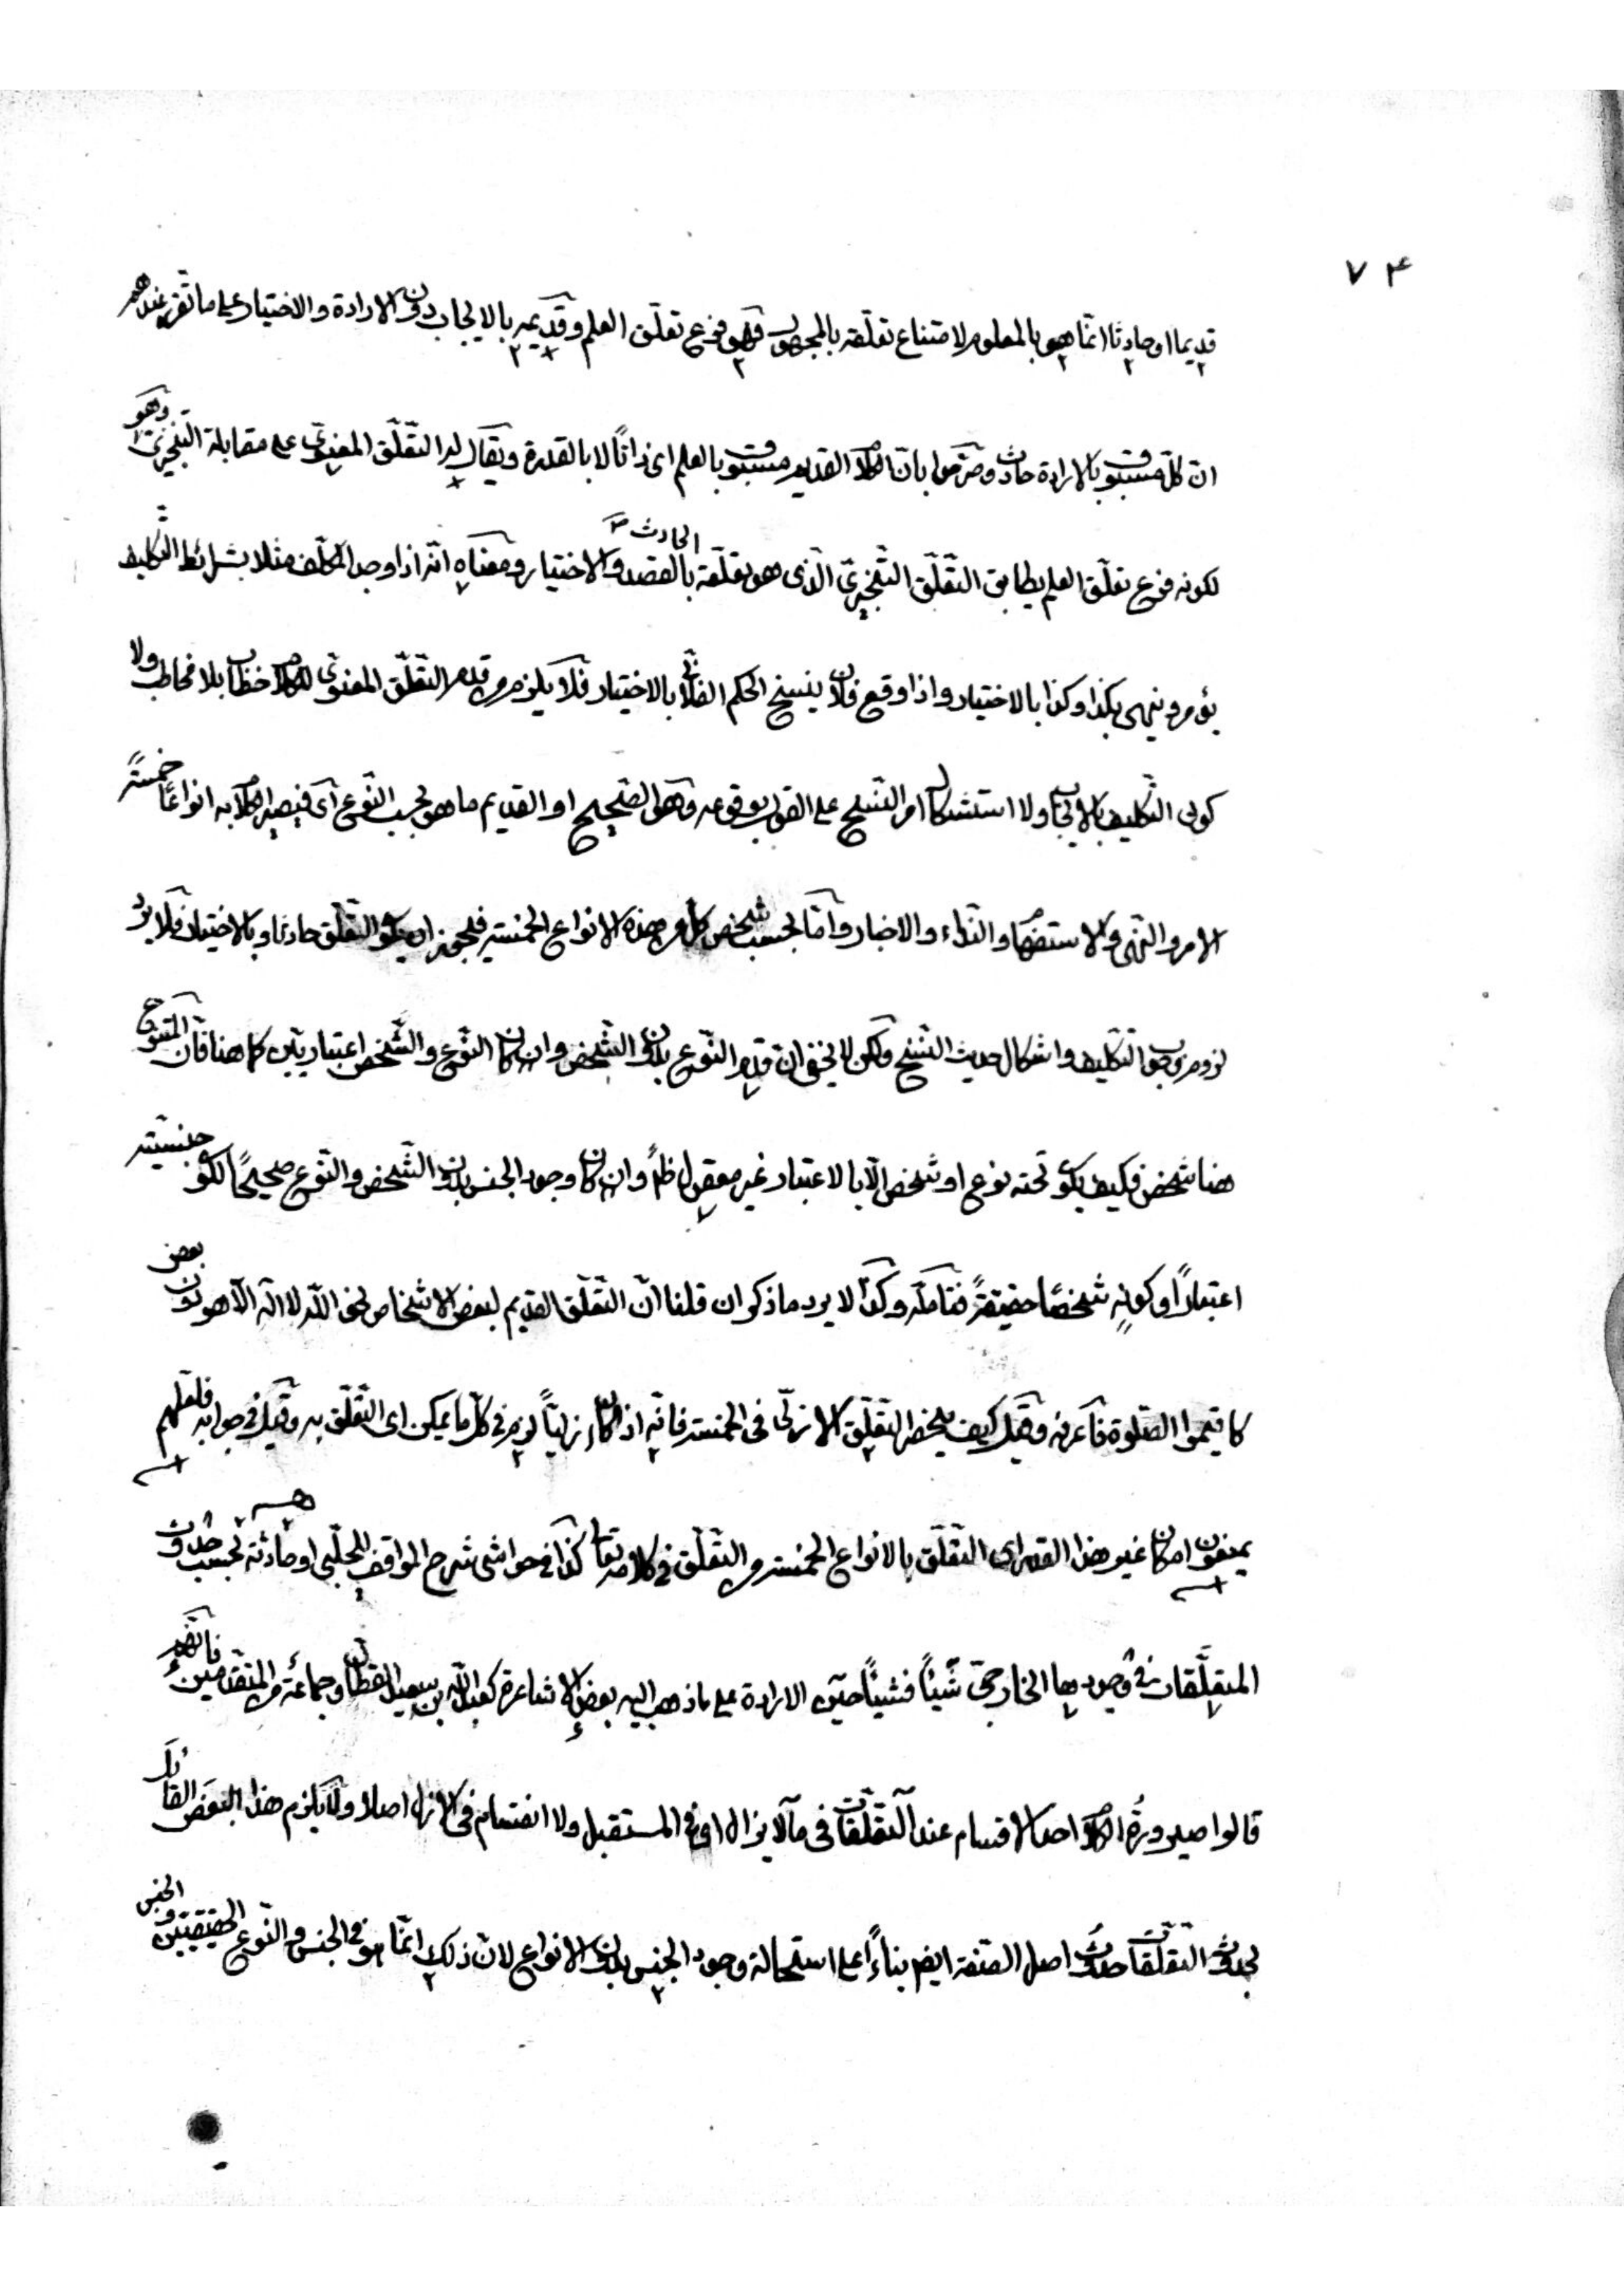 ٧٤
قديما او حادثا انما هو بالمعلوم لامتناع تعلقه بالمجهول فهو فرع تعلّق العلم وقديمه بالايجاب دون الارادة والاختيار على ما تقرر عندهم
ان كلّ مسبوق بالارادة حادث وصرّحوا بانّ الكلام القديم مسبوق بالعلم اى ذاتًا لا بالقدرة ويقال له التعلّق المعنوىّ على مقابلة التنجيزىّ وهو
لكونه فرع تعلّق العلم يطابق التعلّق التنجيزىّ الحادث الّذى هو تعلّقه بالقصد والاختيار ومعناه انّه اذا وجد المكلّف مثلا بشرائط التّكليف
يؤمر وينهى بكذا وكذا بالاختيار واذا وقع فلان ينسخ الحكم الفلانى بالاختيار فلا يلزم من قدم التعلّق المعنوىّ للكلام خطاب بلا مخاطب ولا
كون التّكليف بالايجاب ولا استشكال امر النّسخ على القول بوقوعه وهو الصّحيح او القديم ما هو بحسب النّوع اى فيصير الكلام به انواعًا خمسةً
الامر والنّهى والاستفهام والنّداء والاخبار وامّا بحسب شخص كل من هذه الانواع الخمسة فيجوز ان يكون التّعلّق حادثا وبالاختيار فلا يرد
لزوم وجوب التّكليف واشكال حديث النّسخ ولكن لا يخفى انّ قدم النّوع بدون الشّخص وان كان النّوع والشّخص اعتباريّين كما هنا فانّ المتنوع
هنا شخص فكيف يكون تحته نوع او شخص الّا بالاعتبار غير معقول ظ وان كان وجود الجنس بدون الشّخص والنّوع صحيحًا لكون جنسيته
اعتبارًا وكونه شخصًا حقيقةً فتامّله وكذا لا يرد ما ذكر ان قلنا انّ التّعلّق القديم لبعض الاشخاص نحو اللّه لا اله الّا هو دون بعض
كاقيموا الصّلوة فاعرفه وقيل كيف يخص التعلّق الازلىّ فى الخمسة فانّه اذا كان ازليًّا لزم فى كلّ ما يمكن اى التّعلّق به وقيل فى جوابه فلعلهم
يمنعون امكان غير هذا القدر اى التعلّق بالانواع الخمسة من التعلّق فى كلامه تعالى كذا فى حواشى شرح المواقف للچلبى او حادثة بحسب حدوث
المتعلّقات فى وجودها الخارجىّ شيئًا فشيئًا حين الارادة على ما ذهب اليه بعض الاشاعرة كعبد اللّه بن سعيد القطان وجماعة من المتقدمين فانّهم
قالوا صيرورة الكلام احد الاقسام عند التّعلّقات فى ما لا يزال اى فى المستقبل ولا انقسام فى الازل اصلا ولا يلزم هذا البعض القائل
بحدوث التعلّقات حدوث اصل الصّفة ايضا بناءً على استحالة وجود الجنس بدون الانواع لانّ ذلك انّما هو فى الجنس والنّوع الحقيقيّين والجنس